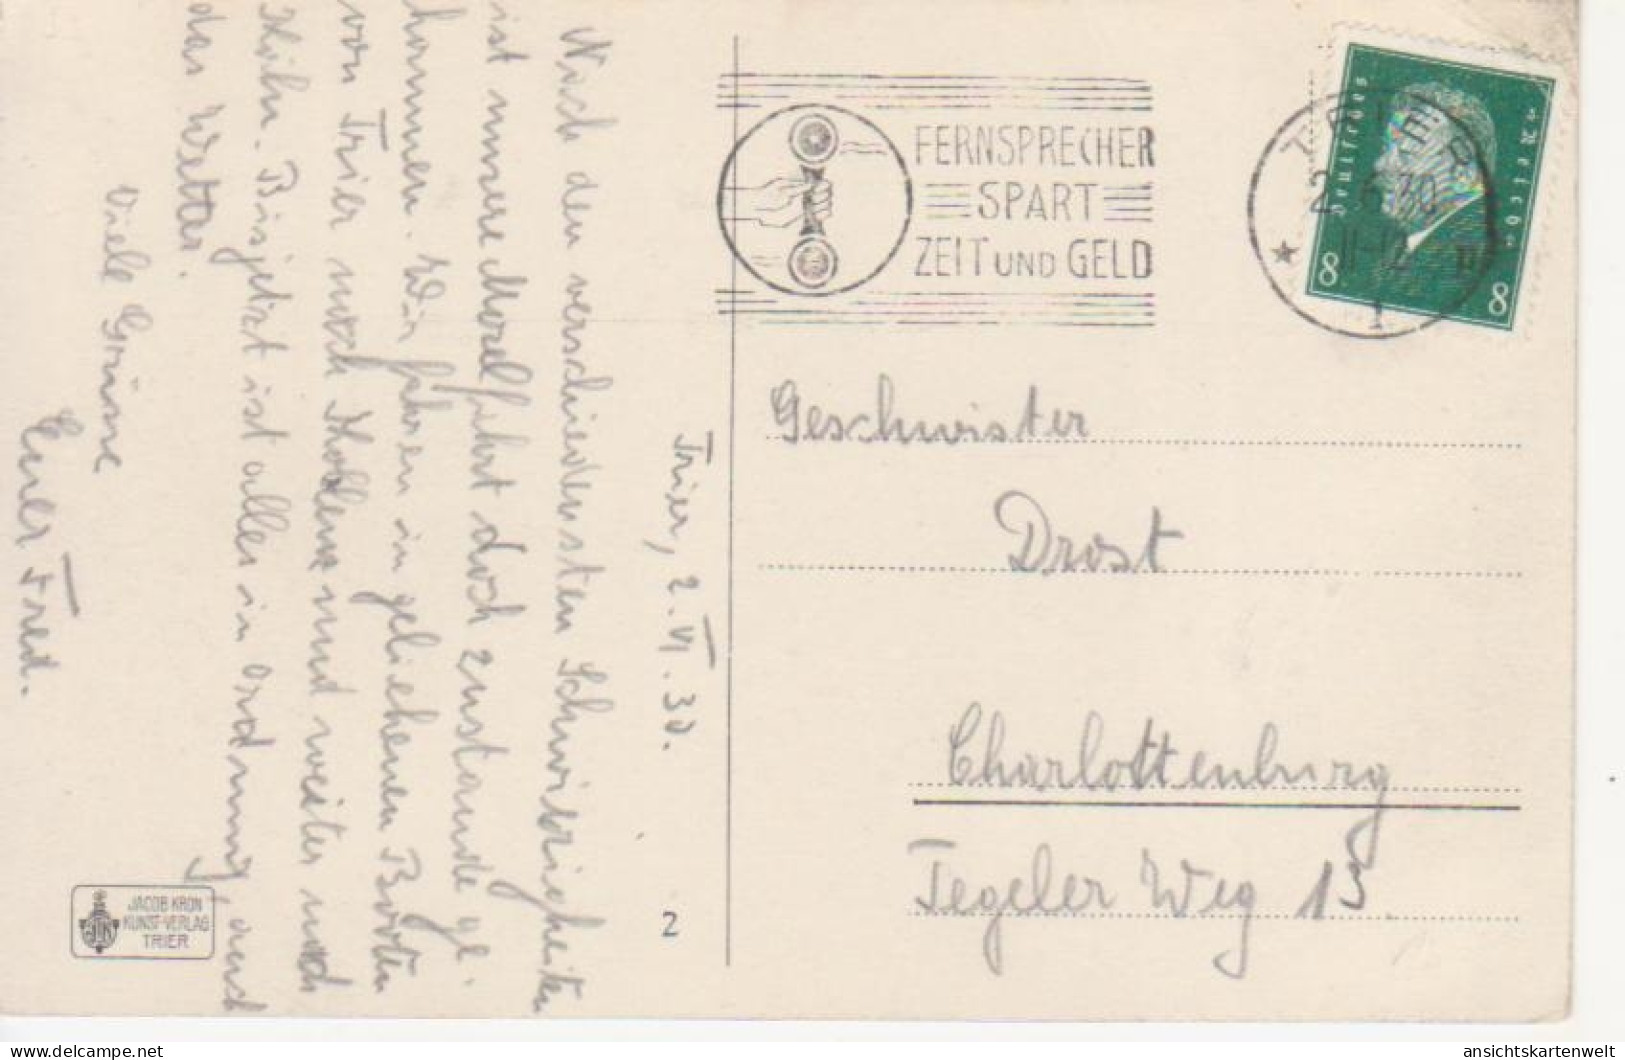 Trier, 2.VI.30.
Nach den verschiedensten Schwierigkeiten
ist unsere Moselfahrt doch zustande ge-
kommen. Wir fahren in geliehenen Booten
von Trier nach Koblenz und weiter nach
Köln. Bis jetzt ist alles in Ordnung, auch
das Wetter.
Viele Grüsse
Euer Fred.
FERNSPRECHER
SPART
ZEIT UND GELD
TRIER
2.6.30
11-12
1
Deutsches Reich
8 8
Geschwister
Drost
Charlottenburg
Tegeler Weg 15
JACOB KRON
KUNST-VERLAG
TRIER
2
ansichtskartenwelt
© delcampe.net